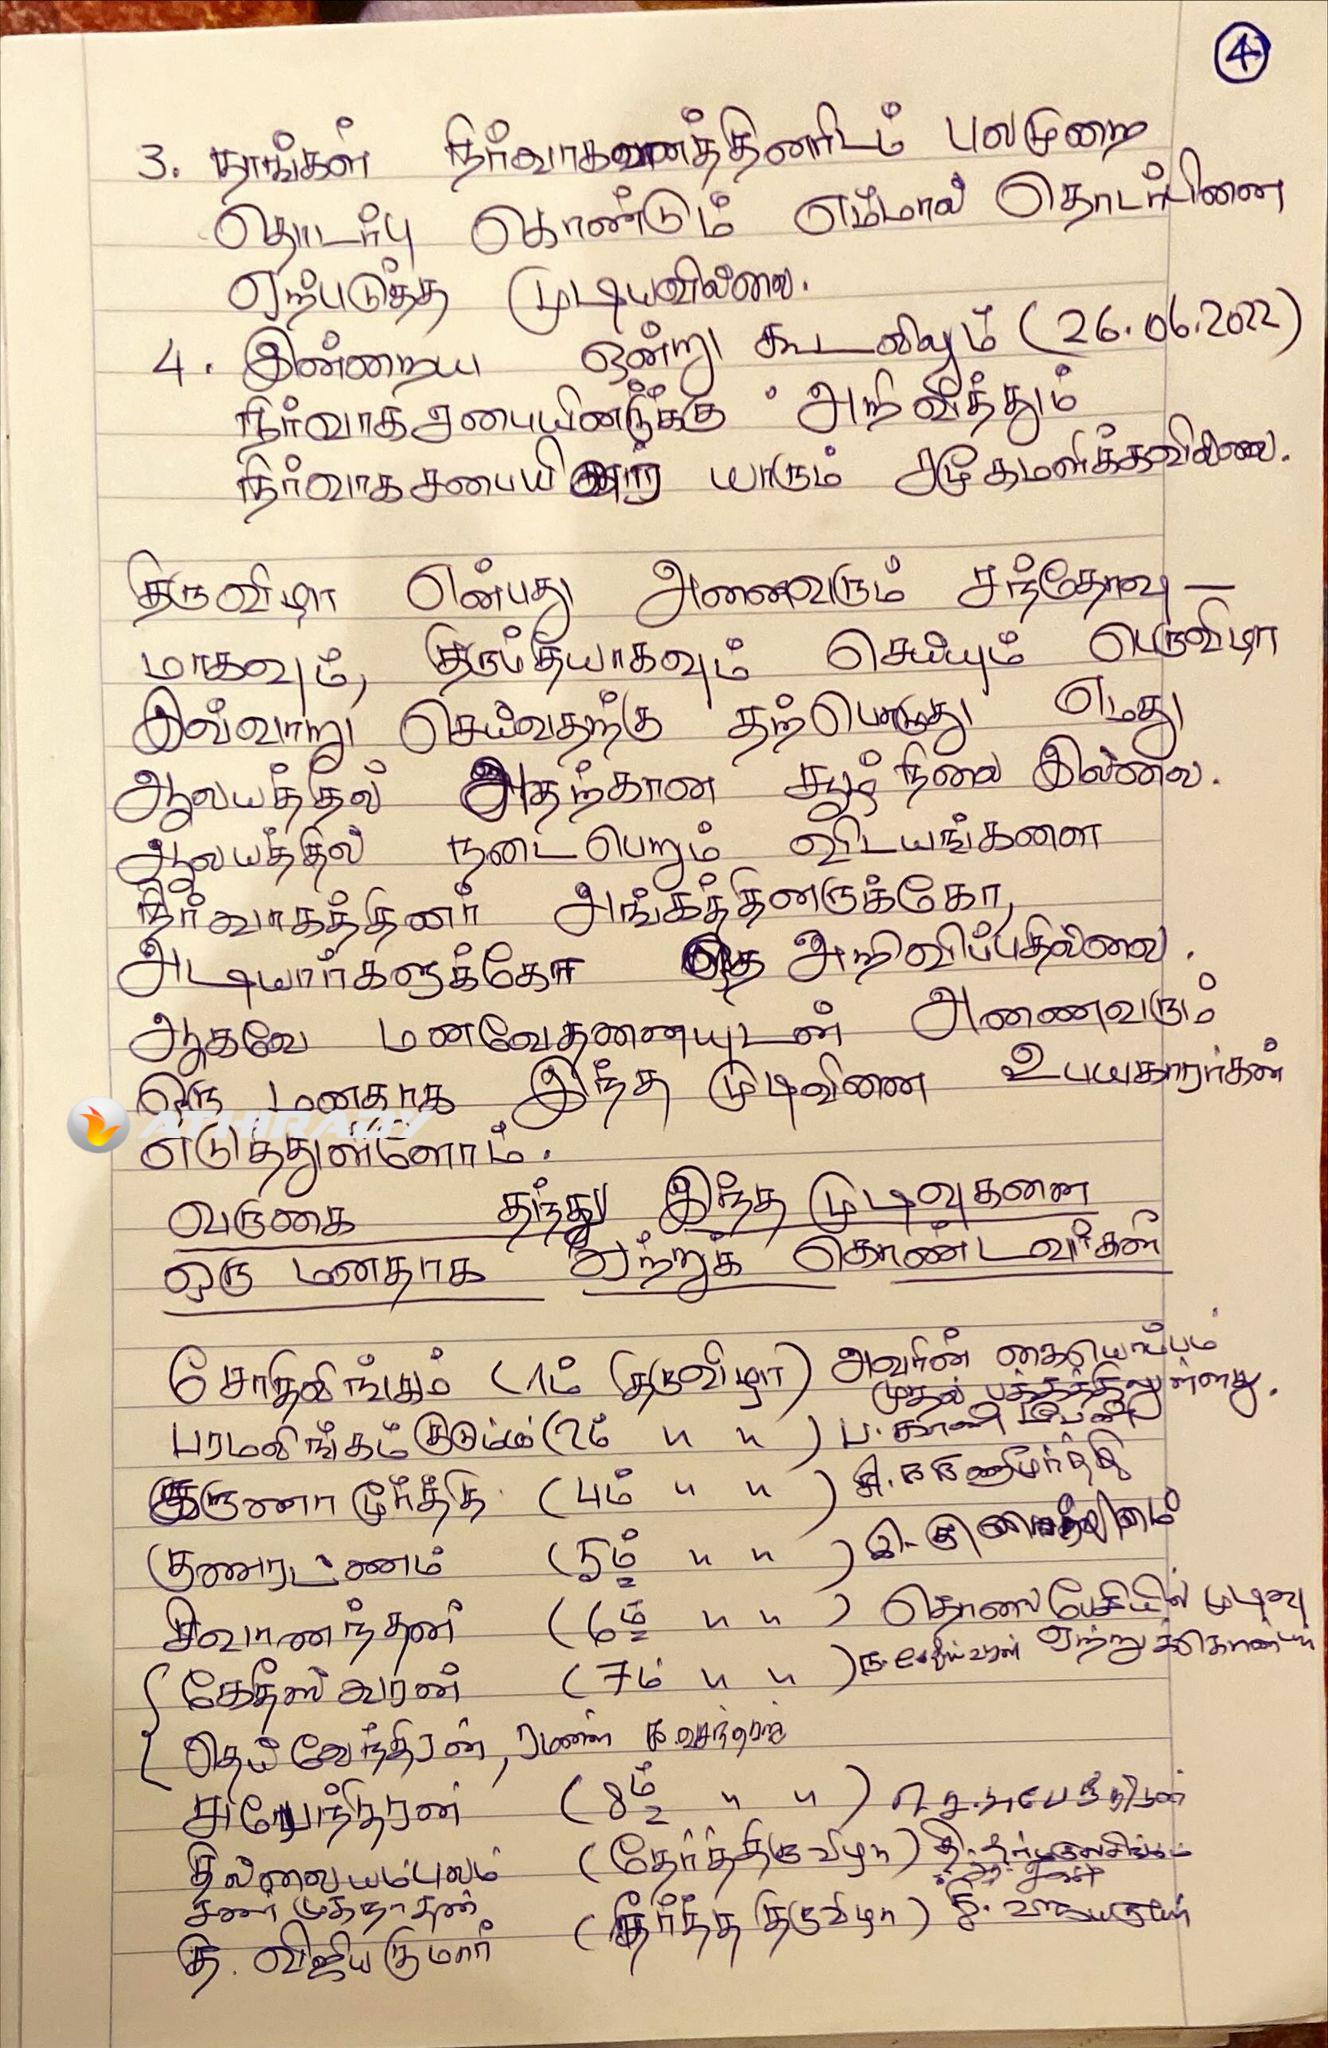 4
3. நாங்கள் நிர்வாகனத்தினரிடம் பலமுறை
தொடர்பு கொண்டும் எம்மால் தொடர்பினை
ஏற்படுத்த முடியவில்லை.
4. இன்றைய ஒன்று கூடலிலும் (26.06.2022)
நிர்வாகசபையினருக்கு அறிவித்தும்
நிர்வாகசபையினர் யாரும் சமூகமளிக்கவில்லை.
திருவிழா என்பது அனைவரும் சந்தோஷ-
மாகவும், திருப்தியாகவும் செய்யும் பெருவிழா
இவ்வாறு செய்வதற்கு தற்பொழுது எமது
ஆலயத்தில் அதற்கான சூழ்நிலை இல்லை.
ஆலயத்தில் நடைபெறும் விடயங்களை
நிர்வாகத்தினர் அங்கத்தினருக்கோ,
அடியார்களுக்கோ அறிவிப்பதில்லை.
ஆகவே மனவேதனையுடன் அனைவரும்
ஒரு மனதாக இந்த முடிவினை உபயகாரர்கள்
எடுத்துள்ளோம்.
ATHIRADY
வருகை தந்து இந்த முடிவுகளை
ஒரு மனதாக ஏற்றுக் கொண்டவர்கள்
சோதிலிங்கம் (1ம் திருவிழா) அவரின் கையொப்பம்
முதல் பக்கத்திலுள்ளது.
பரமலிங்கம் குடும்பம் (2ம் " " )
கருணாமூர்த்தி (4ம் " " )
குணரட்ணம் (5ம் " " )
சிவானந்தன் (6ம் " " ) தொலைபேசியில் முடிவு
ஏற்றுக்கொண்டார்
கேதீஸ்வரன் (7ம் " " )
தெய்வேந்திரன், ரமணன்
சுரேந்திரன் (8ம் " " )
தில்லையம்பலம் (தேர்த்திருவிழா)
சண்முகநாதன்
கு. விஜியகுமார் (தீர்த்த திருவிழா)